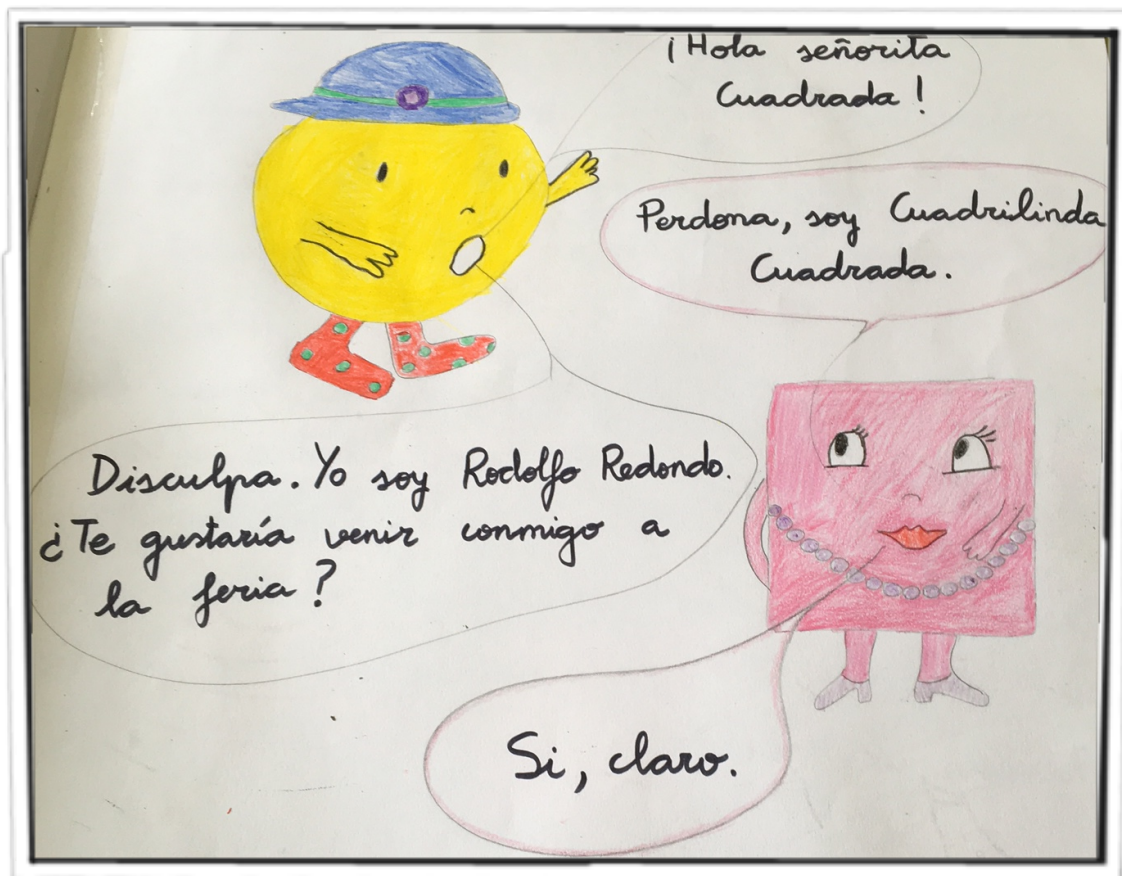 ¡Hola señorita
Cuadrada!
Perdona, soy Cuadrilinda
Cuadrada.
Disculpa. Yo soy Rodolfo Redondo.
¿Te gustaría venir conmigo a
la feria?
Si, claro.